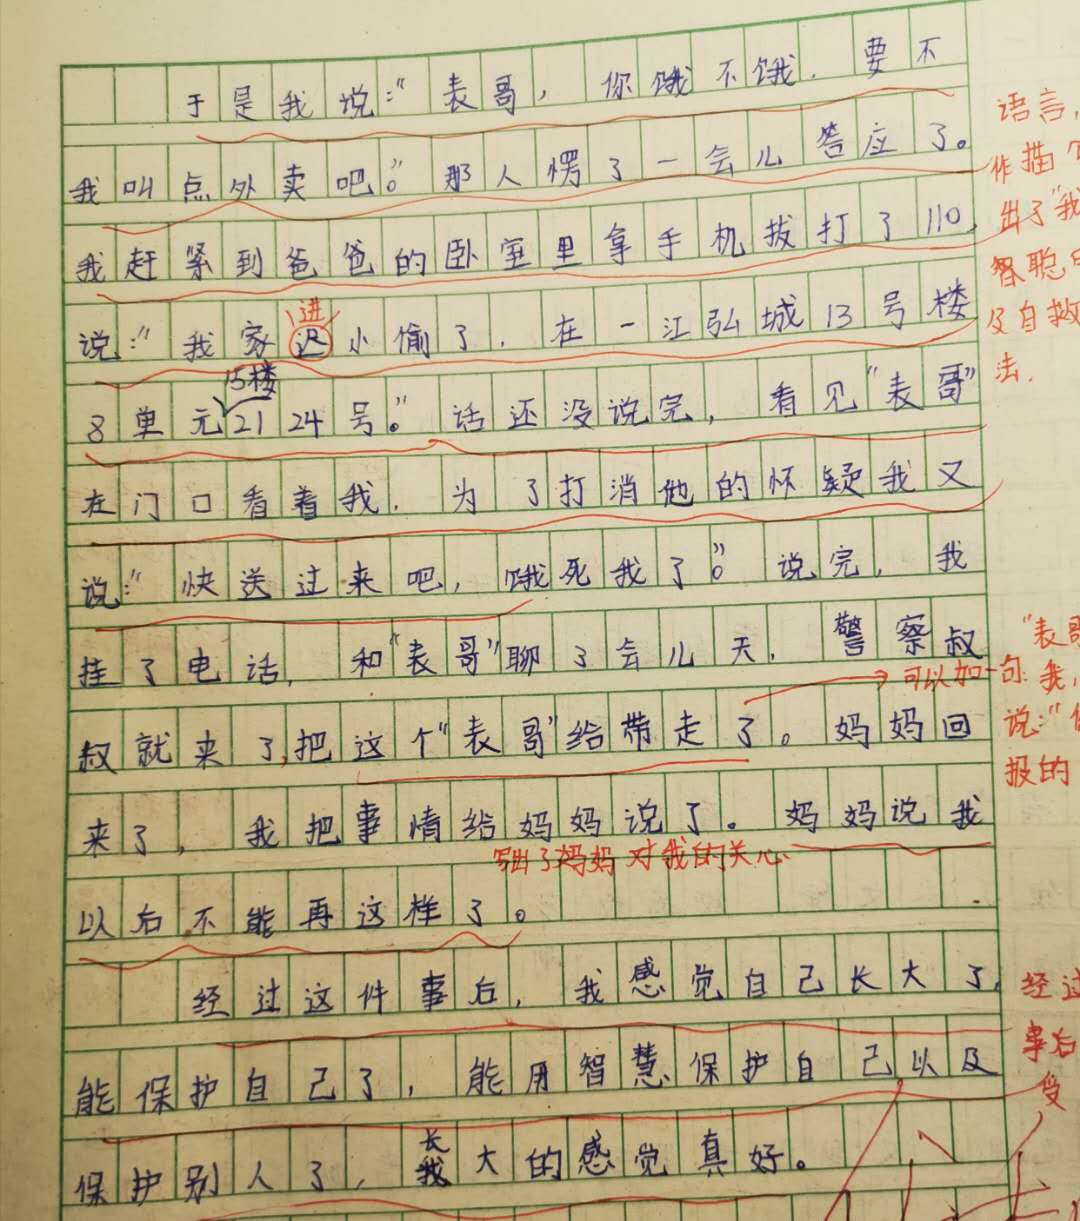 于是我说:“表哥,你饿不饿.要不
语言,
我叫点外卖吧。”那人愣了一会儿答应了。
作描写
我赶紧到爸爸的卧室里拿手机拔打了110,
出了“我
进
智聪
说:“我家迟小偷了.在一江弘城13号楼
及自救
15楼
法.
8单元2124号。”话还没说完,看见“表哥”
在门口看着我.为了打消他的怀疑我又
说:“快送过来吧,饿死我了。”说完,我
挂了电话,和“表哥”聊了会儿天.警察叔
“表哥
可以加一句:我,
叔就来了,把这个“表哥”给带走了。妈妈回
说:“
报的
来了,我把事情给妈妈说了。妈妈说我
写出了妈妈对我的关心.
以后不能再这样了。
经过这件事后,我感觉自己长大了,
经过
能保护自己了,能用智慧保护自己以及
事后
受
长
保护别人了,我大的感觉真好。